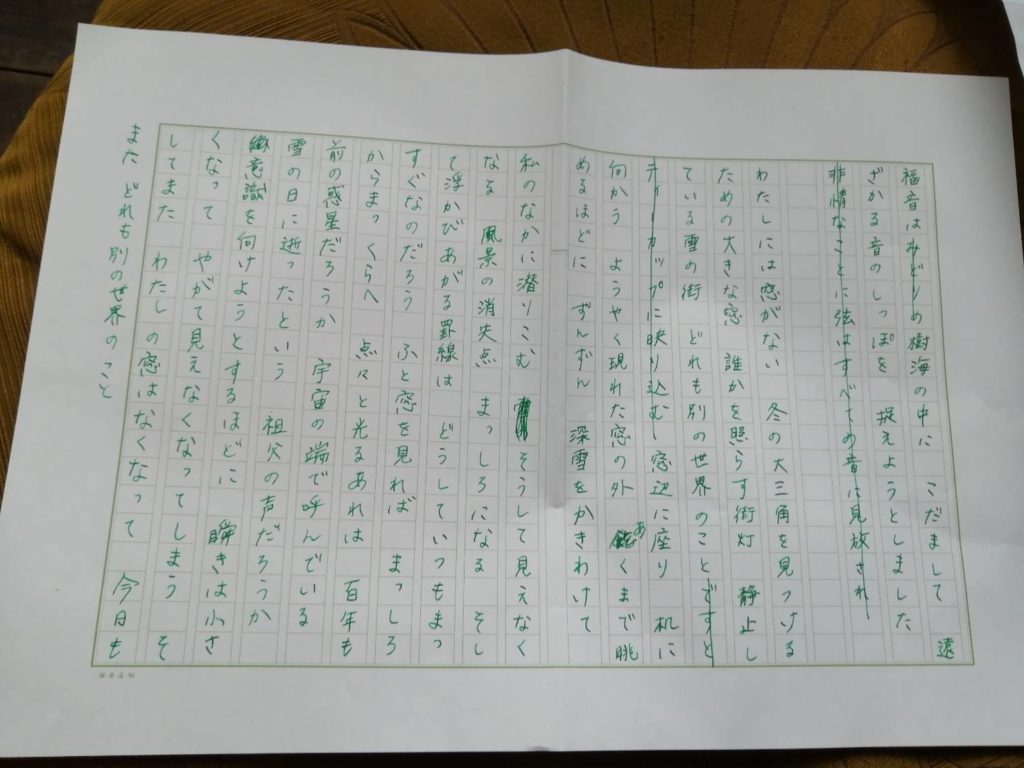 福音はみどりの樹海の中に　こだまして　遠
ざかる音のしっぽを　捉えようとしました
非情なことに弦はすべての音に見放され
わたしには窓がない　冬の大三角を見つける
ための大きな窓　誰かを照らす街灯　静止し
ている雪の街　どれも別の世界のことですと
ティーカップに映り込む　窓辺に座り　机に
向かう　ようやく現れた窓の外　あくまで眺
めるほどに　ずんずん　深雪をかきわけて
私のなかに潜りこむ　そうして見えなく
なる　風景の消失点　まっしろになる　そし
て浮かびあがる罫線は　どうしていつもまっ
すぐなのだろう　ふと窓を見れば　まっしろ
からまっくらへ　点々と光るあれは　百年も
前の惑星だろうか　宇宙の端で呼んでいる
雪の日に逝ったという　祖父の声だろうか
意識を向けようとするほどに　瞬きは小さ
くなって　やがて見えなくなってしまう　そ
してまた　わたしの窓はなくなって　今日も
また　どれも別の世界のこと